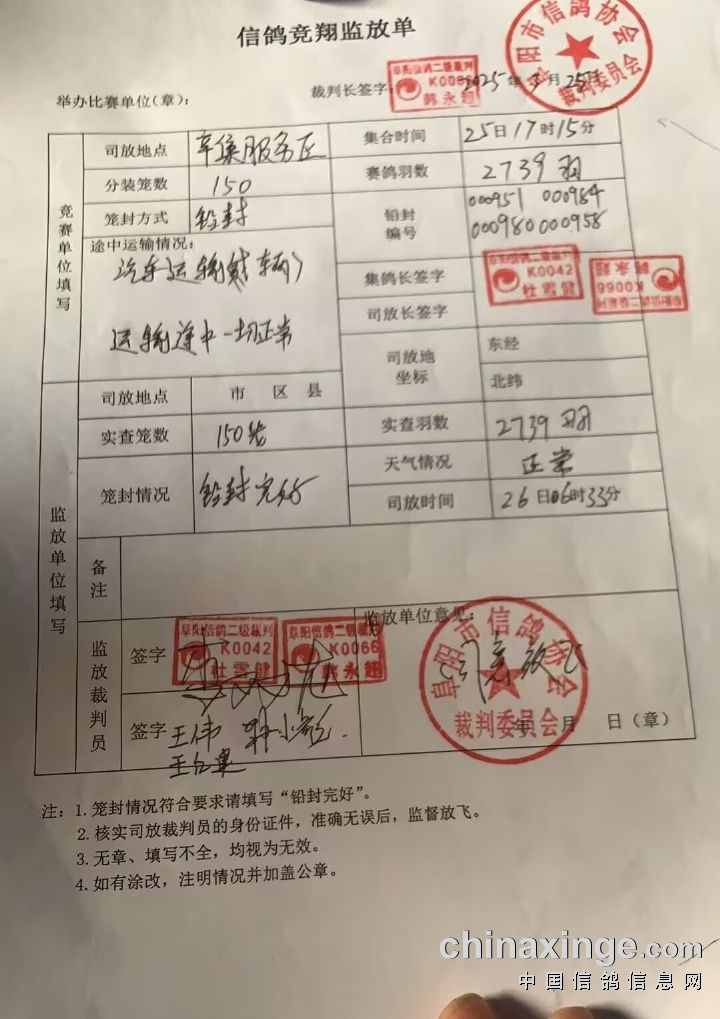 信鸽竞翔监放单
阜阳市信鸽协会
裁判委员会
举办比赛单位(章):
裁判长签字
阜阳信鸽二级裁判
K0066
韩永超
2025年3月25日
竞赛单位填写
司放地点 辛集服务区 集合时间 25日17时15分
分装笼数 150 赛鸽羽数 2739 羽
笼封方式 铅封 铅封编号 000951 000984
000980 000958
途中运输情况:
汽车运输
运输途中一切正常
集鸽长签字
阜阳信鸽二级裁判
K0042
杜雪健
司放长签字
阜阳信鸽二级裁判
K0066
韩永超
司放地坐标 东经
北纬
监放单位填写
司放地点 市 区 县
实查笼数 150笼 实查羽数 2739 羽
天气情况 正常
笼封情况 铅封完好 司放时间 26日06时33分
备注
监放裁判员
签字
阜阳信鸽二级裁判
K0042
杜雪健
阜阳信鸽二级裁判
K0066
韩永超
签字 王伟
监放单位意见:
同意放飞
阜阳市信鸽协会
裁判委员会
年 月 日(章)
注: 1. 笼封情况符合要求请填写“铅封完好”。
2. 核实司放裁判员的身份证件,准确无误后,监督放飞。
3. 无章、填写不全,均视为无效。
4. 如有涂改,注明情况并加盖公章。
chinaxinge.com
中国信鸽信息网